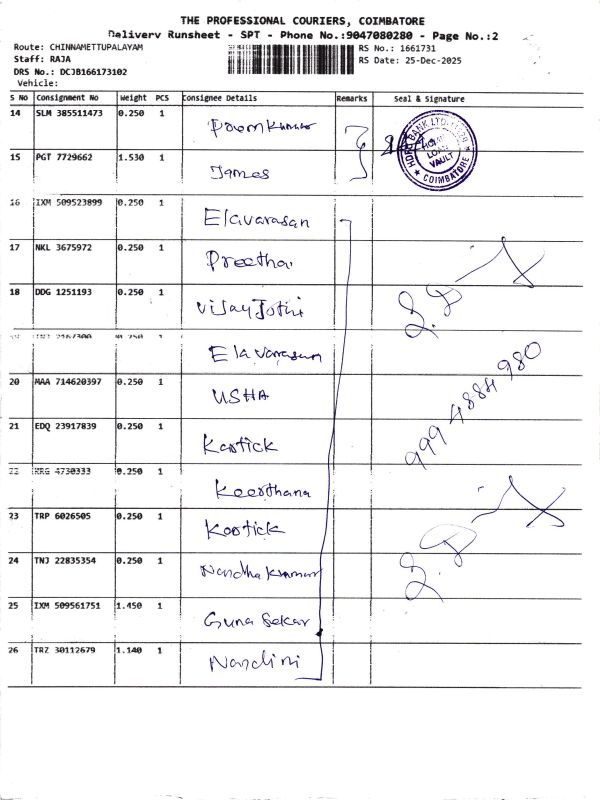 THE PROFESSIONAL COURIERS, COIMBATORE
Delivery Runsheet - SPT - Phone No.:9047080280 - Page No.:2
Route: CHINNAMETTUPALAYAM
Staff: RAJA
DRS No.: DCJB166173102
Vehicle:
RS No.: 1661731
RS Date: 25-Dec-2025
S No Consignment No Weight PCS Consignee Details Remarks Seal & Signature
14 SLM 385511473 0.250 1 Poornkumar
HOME LOAN VAULT
COIMBATORE
15 PGT 7729662 1.530 1 James
16 IXM 509523899 0.250 1 Elavarasan
17 NKL 3675972 0.250 1 Preetha
18 DDG 1251193 0.250 1 Vijay Jothi
Elavarasan
20 MAA 714620397 0.250 1 USHA
21 EDQ 23917839 0.250 1 Kartick
999 4884 980
22 KRG 4730333 0.250 1 Keerthana
23 TRP 6026505 0.250 1 Kartick
24 TNJ 22835354 0.250 1 Nandhakumar
25 IXM 509561751 1.450 1 Guna Sekar
26 TRZ 30112679 1.140 1 Nandini